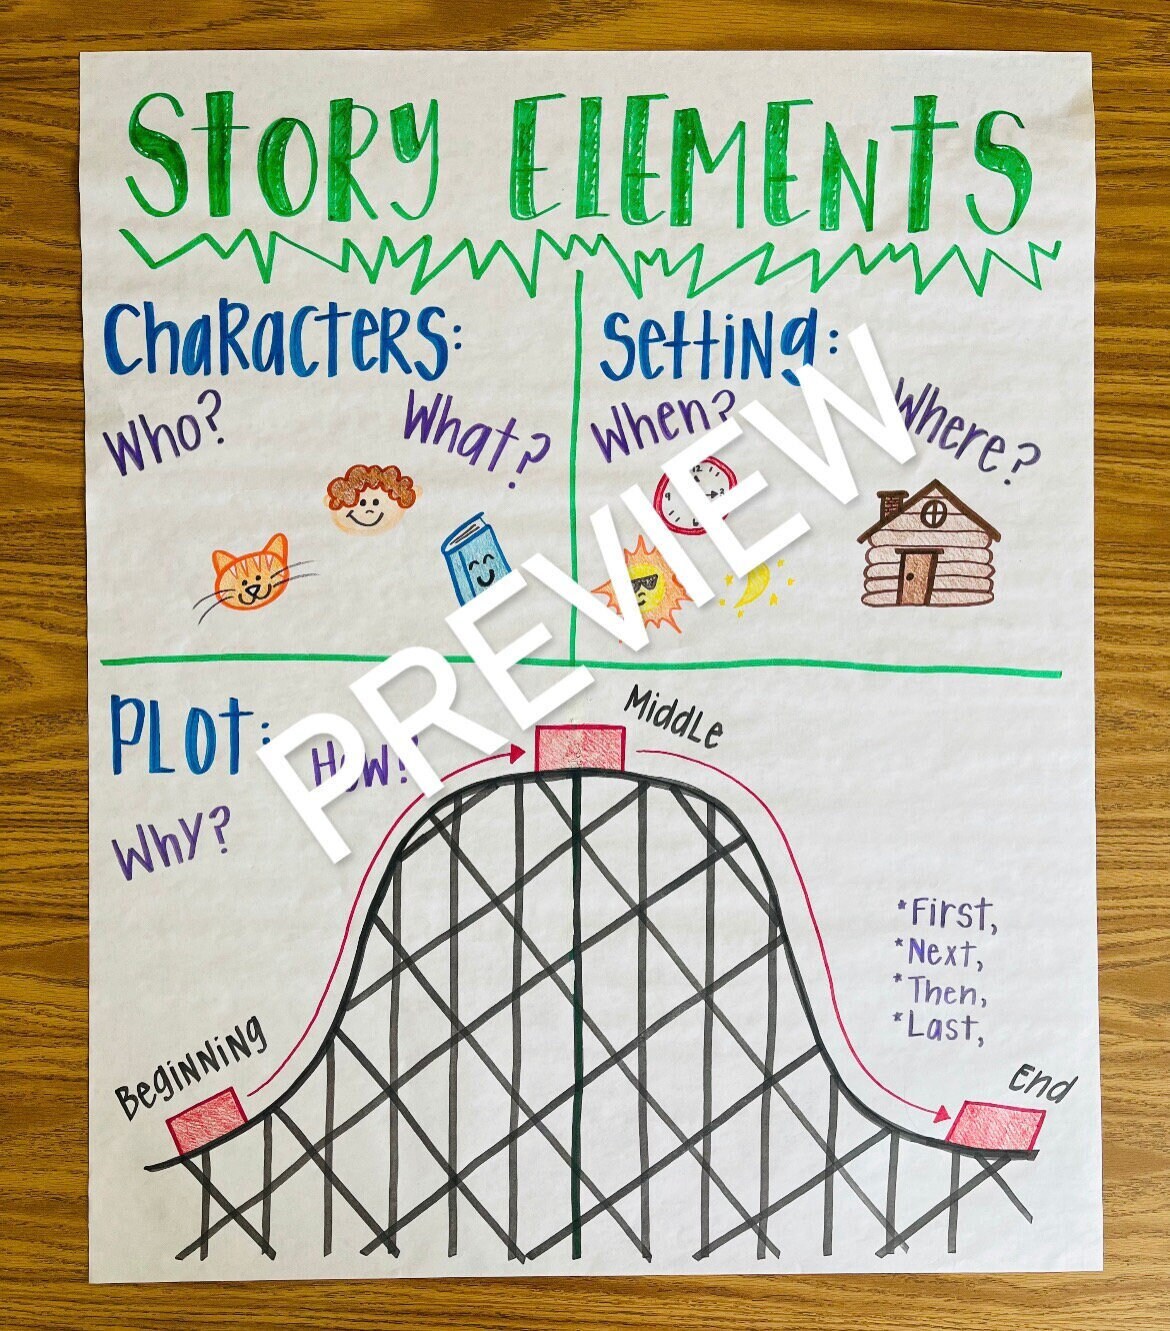 Story Elements
Characters:
Who?
What?
Setting:
When?
Where?
PREVIEW
Plot:
How?
Why?
Beginning
Middle
End
*First,
*Next,
*Then,
*Last,